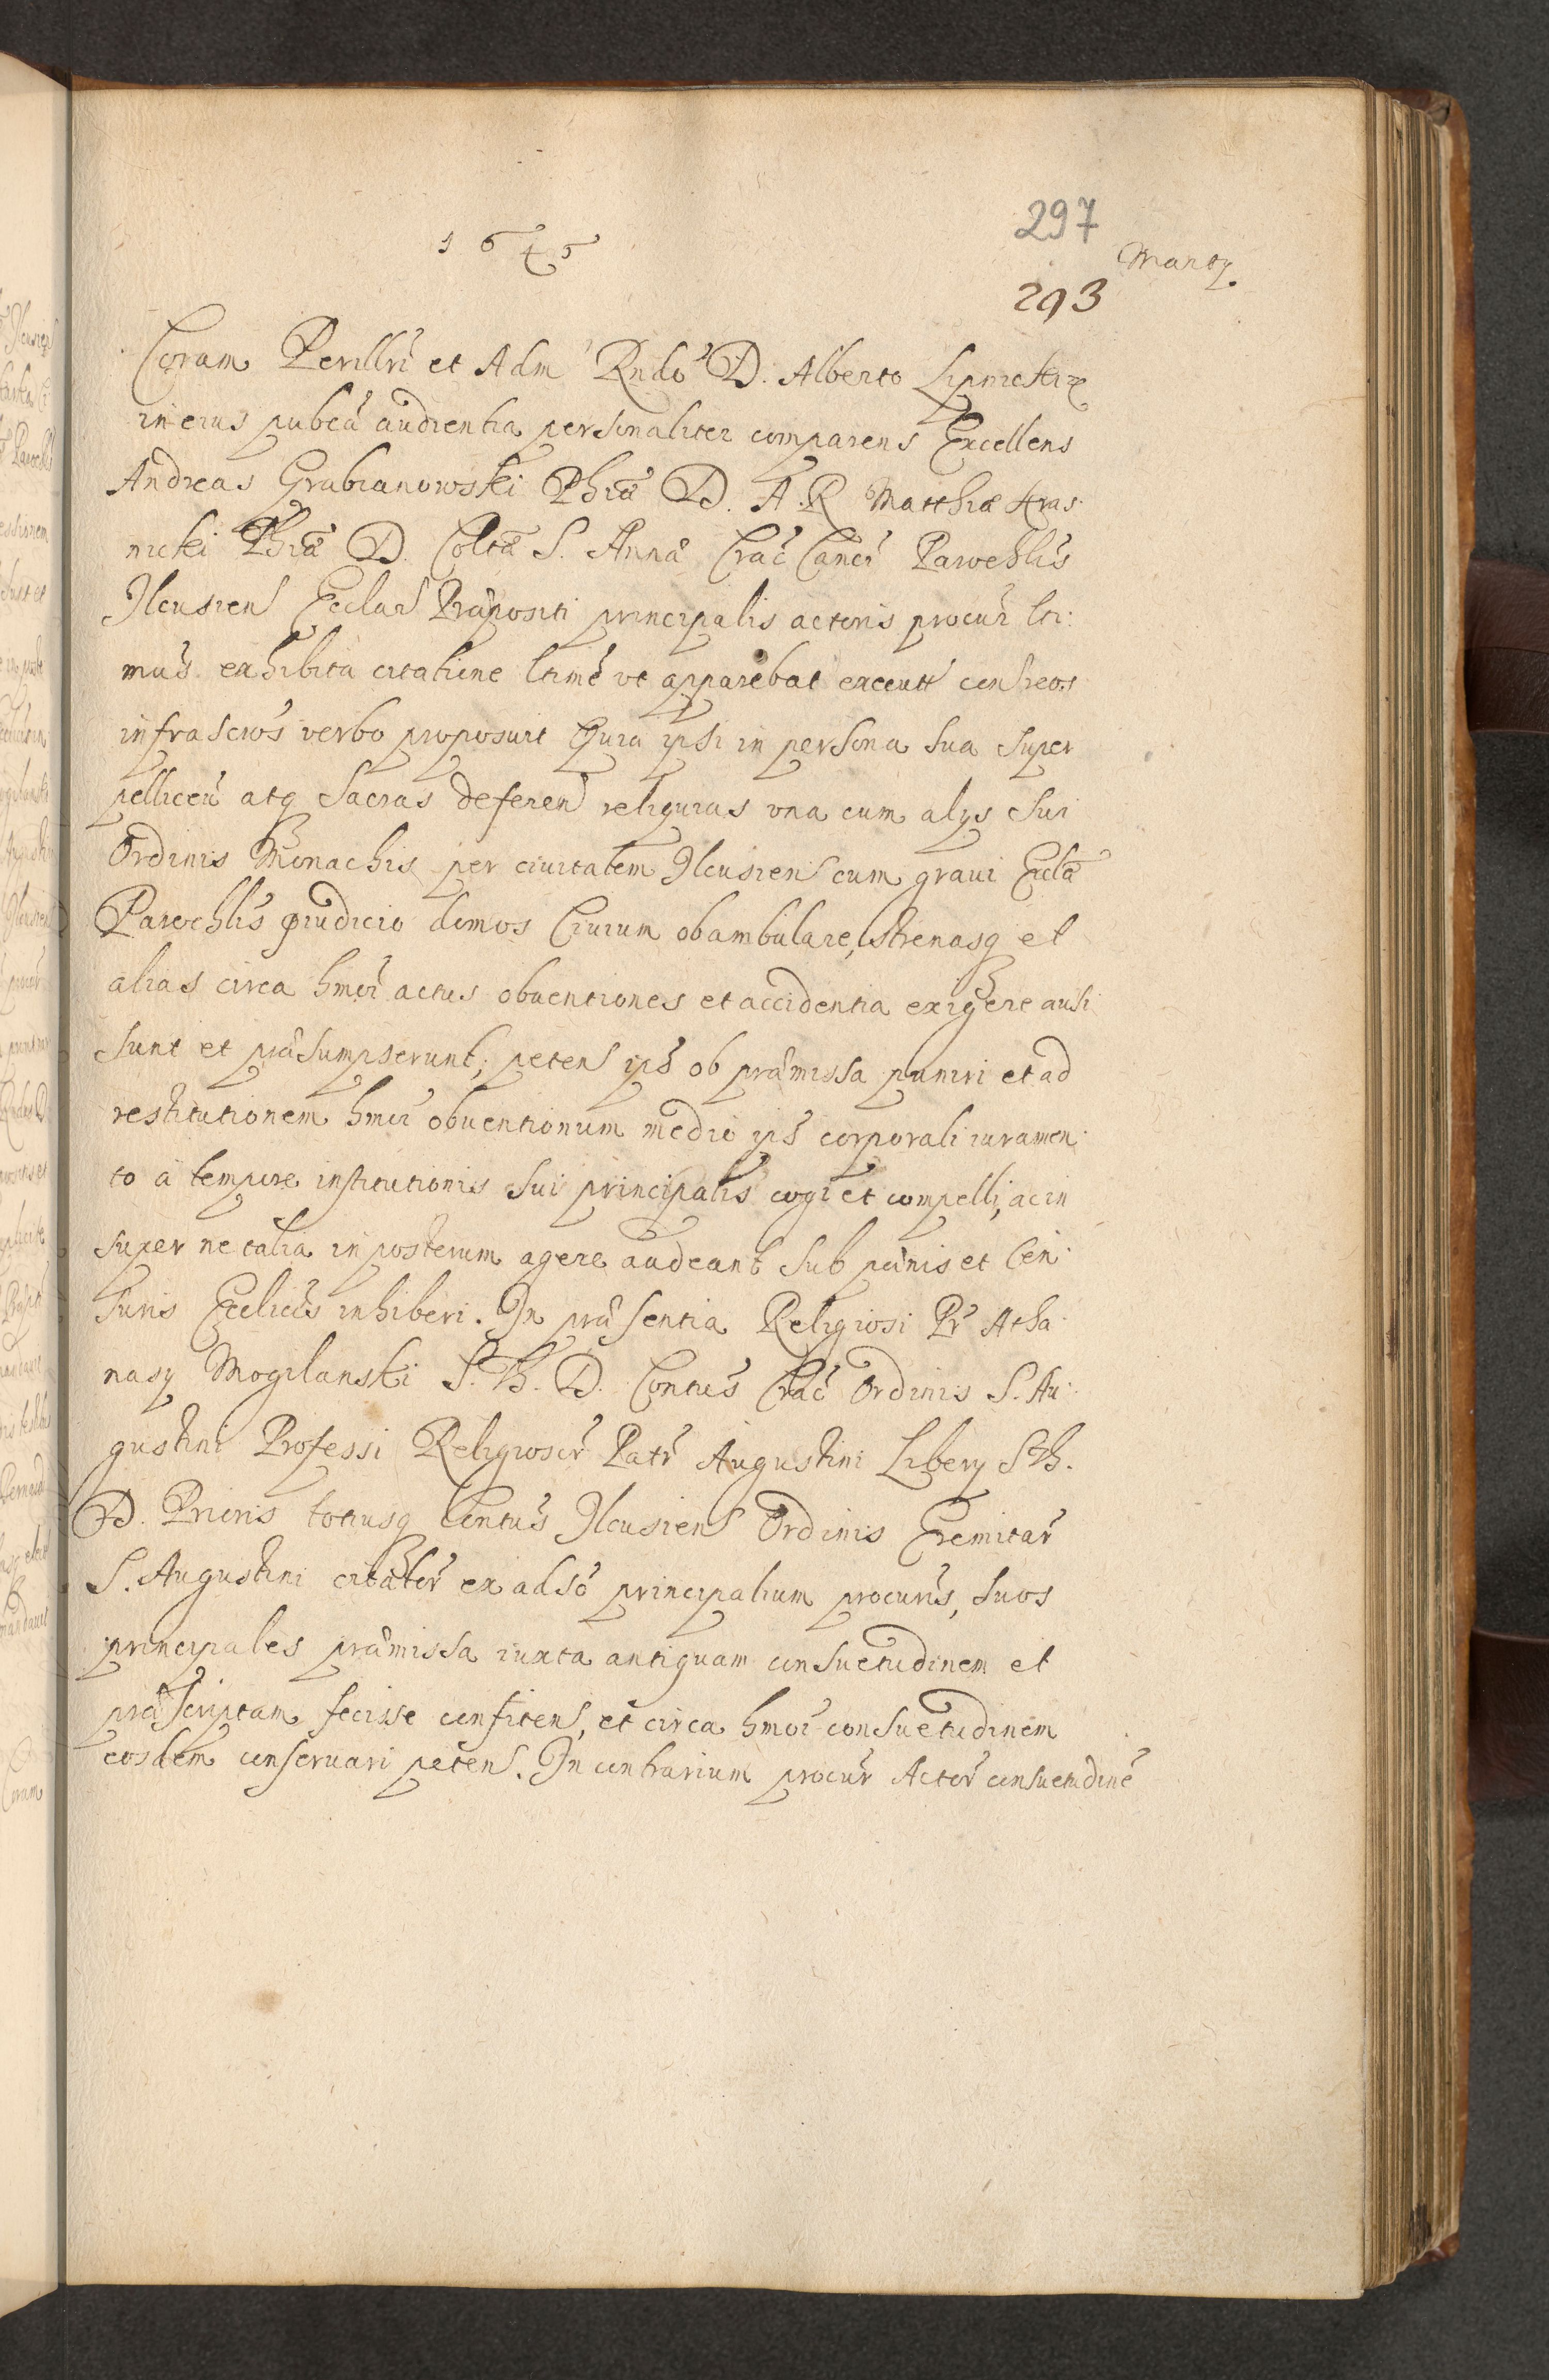 297
1645
Marty.
293
Coram Perillri et Adm Rndo D. Alberto Lipnicki
in eius pubca audientia personaliter comparens Excellens
Andreas Grabianowski Phiæ D. A. R. Matthiæ Kras
nicki Phiæ D. Coltæ S. Annæ Crac Canci Parochlis
Ilcusien Ecclae Præpositi principalis actoris procur lti:
mus exhibita citatione ltime ut apparebat execut con reos
infrascros verbo proposuit Quia ipsi in persona sua super
pelliceu atq Sacras deferen reliquias una cum alys sui
Ordinis Monachis per ciuitatem Ilcusien cum graui Eccla
Parochlis piudicio domos Ciuium obambulare, strenasq et
alias circa hmoi actus obuentiones et accidentia exigere ausi
sunt et præsumpserunt; petens ips ob præmissa puniri et ad
restitutionem hmoi obuentionum medio ips corporali iuramen
to à tempore institutionis sui principalis cogi et compelli, ac in
super ne talia in posterum agere audeant sub pænis et Cen
suris Ecclicis inhiberi. In præsentia Religiosi Pr Atha
nasy Mogilanski S. Th. D. Contus Crac Ordinis S. Au
gustini Professi Religiosor Patr Augustini Libery S Th.
D. Prioris totiusq Contus Ilcusien Ordinis Eremitar
S. Augustini citator ex adso principalium procuris, suos
principales præmissa iuxta antiquam consuetudinem et
præscriptam fecisse confitens, et circa hmoi consuetudinem
eosdem conseruari petens. In contrarium procur Actor consuetudine